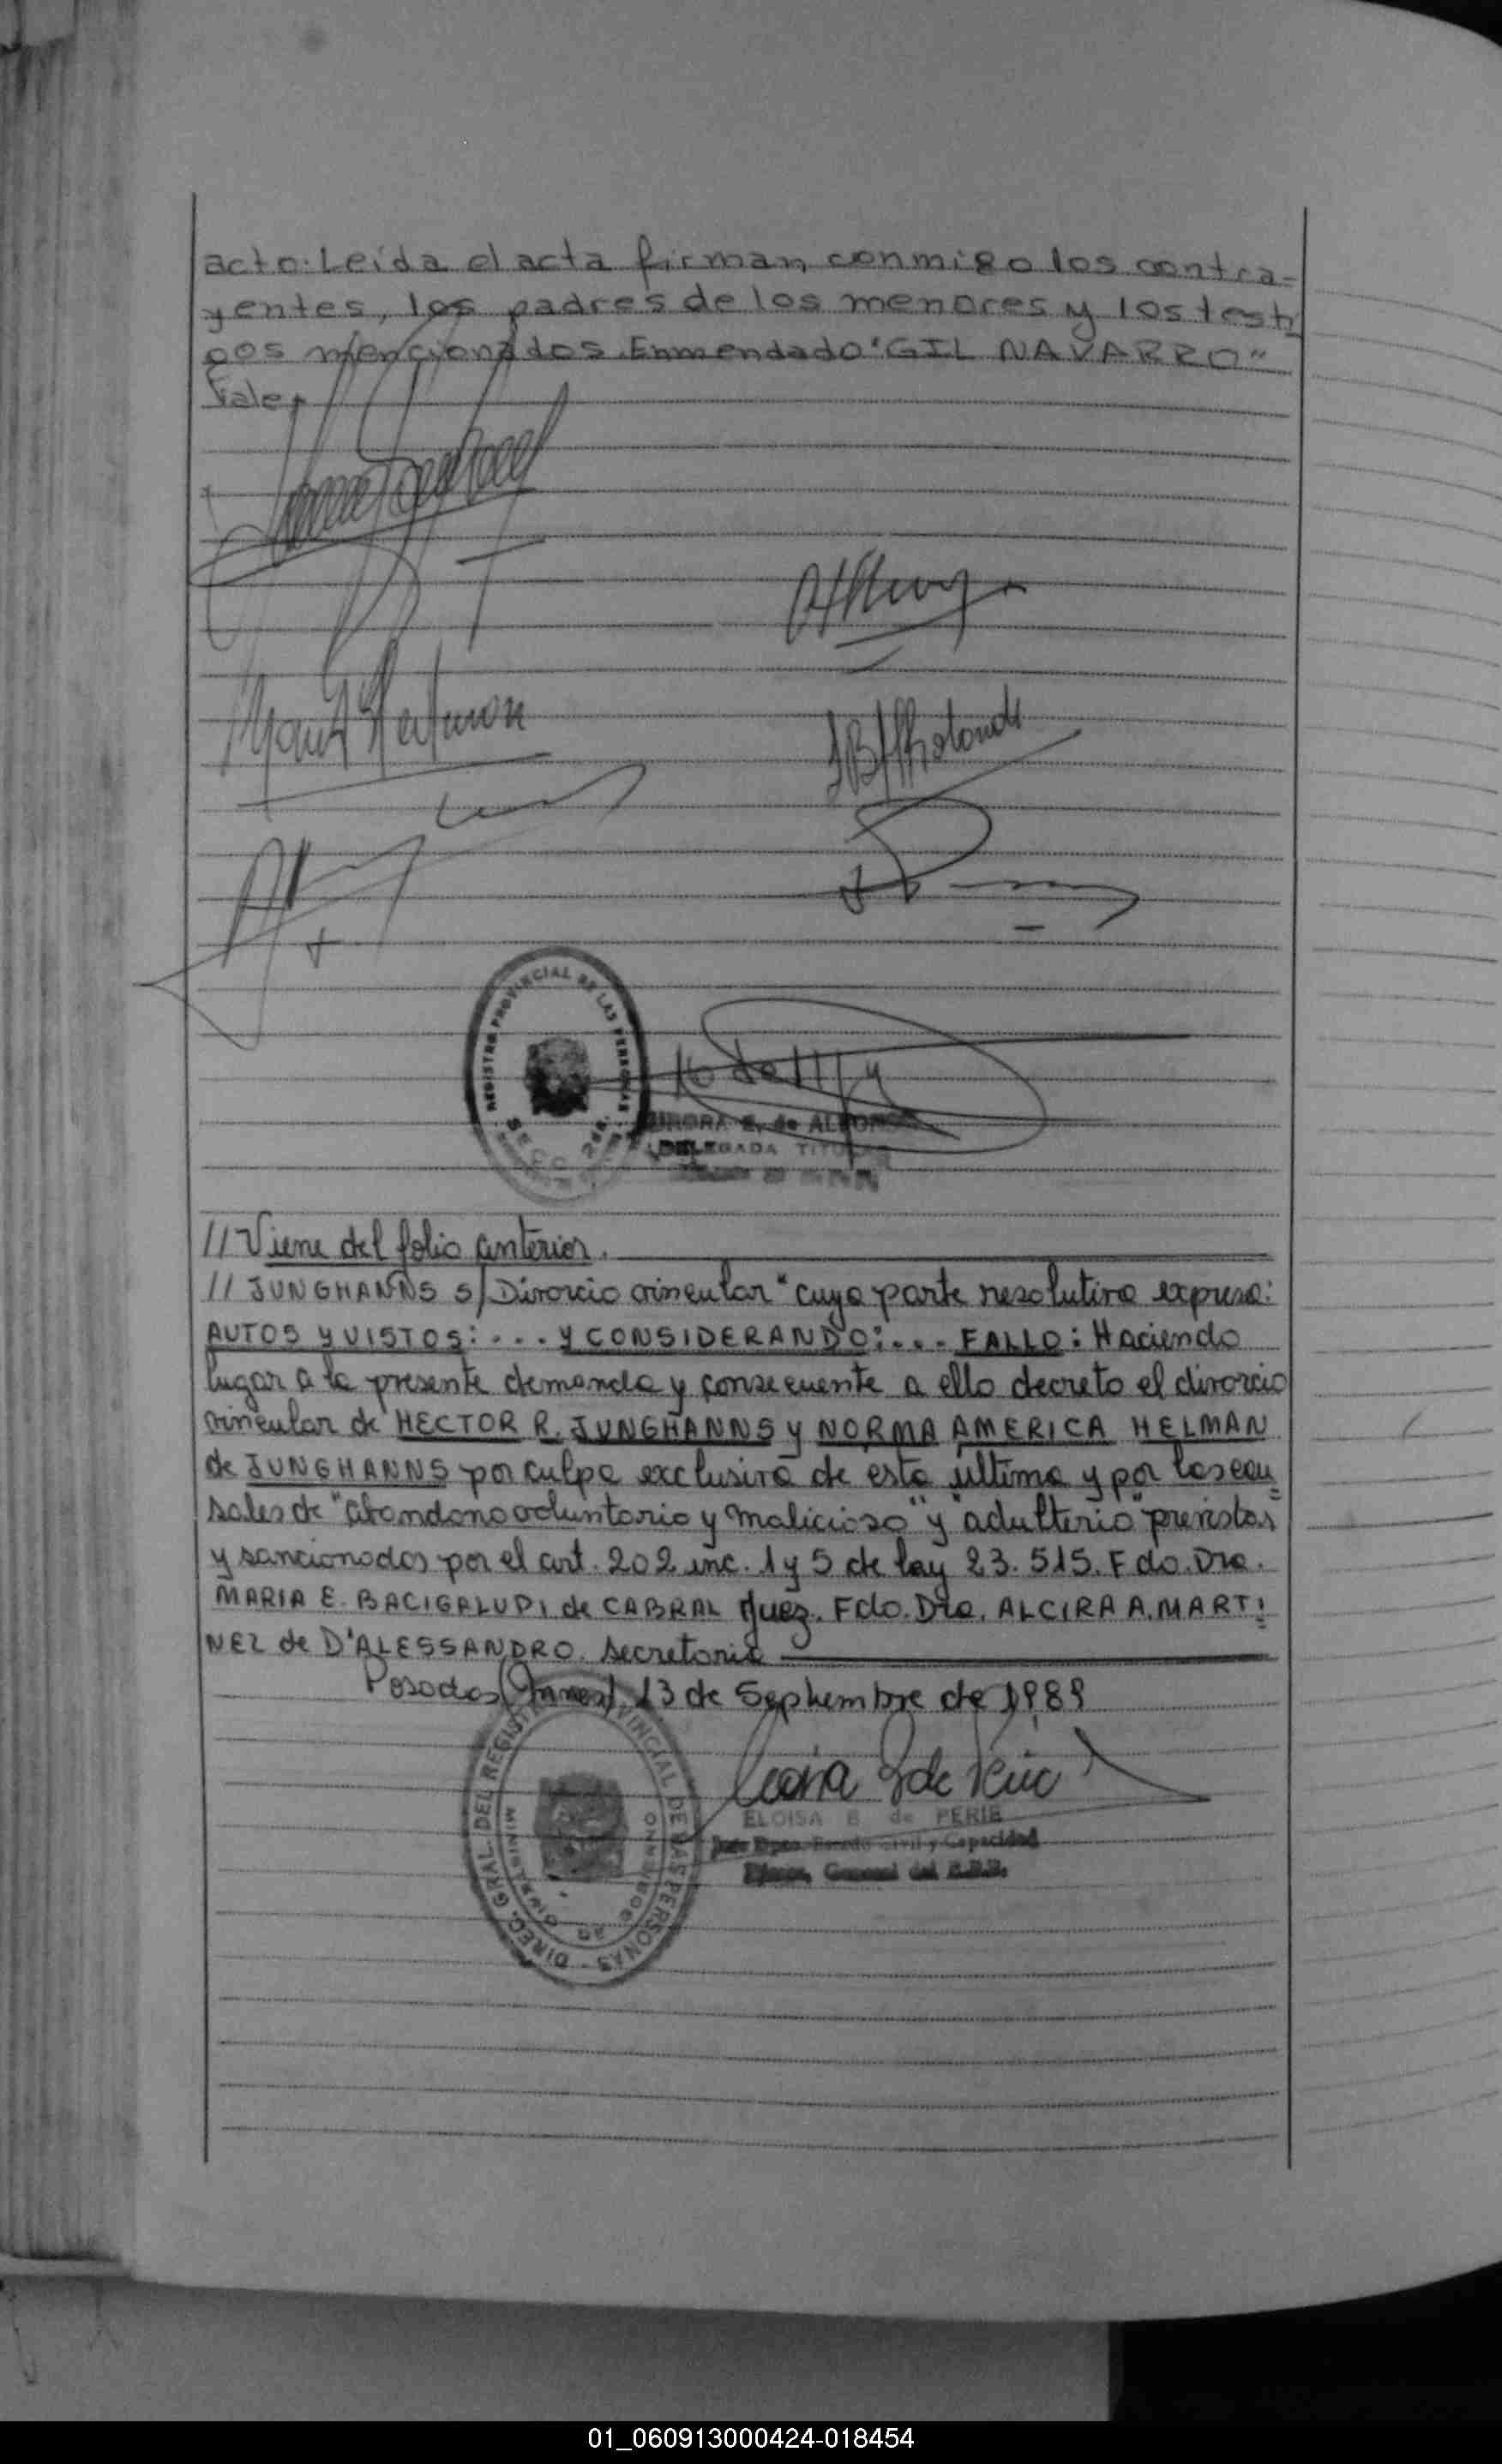 acto. Leída el acta firman conmigo los contra-
yentes, los padres de los menores y los testi
gos mencionados. Enmendado "GIL NAVARRO"
Vale.
REGISTRO PROVINCIAL DE LAS PERSONAS
SECC. 2da.
AURORA E. de ALFONSO
DELEGADA TITULAR
// Viene del folio anterior.
// JUNGHANNS s/Divorcio vincular" cuya parte resolutiva expresa:
AUTOS Y VISTOS: ... Y CONSIDERANDO: ... FALLO: Haciendo
lugar a la presente demanda y consecuente a ello decreto el divorcio
vincular de HECTOR R. JUNGHANNS y NORMA AMERICA HELMAN
de JUNGHANNS por culpa exclusiva de esta última y por las cau
sales de "abandono voluntario y malicioso" y "adulterio" previstas
y sancionados por el art. 202 inc. 1 y 5 de ley 23.515. Fdo. Dra.
MARIA E. BACIGALUPI de CABRAL Juez. Fdo. Dra. ALCIRA A. MARTI
NEZ de D'ALESSANDRO. Secretaria
Posadas (Mnes), 13 de Septiembre de 1989
DIREC. GRAL. DEL REGISTRO PROVINCIAL DE LAS PERSONAS
MINISTERIO DE GOBIERNO
ELOISA B de PERIE
Jefe Dpto. Estado Civil y Capacidad
Direcc. General del R.P.P.
01_060913000424-018454